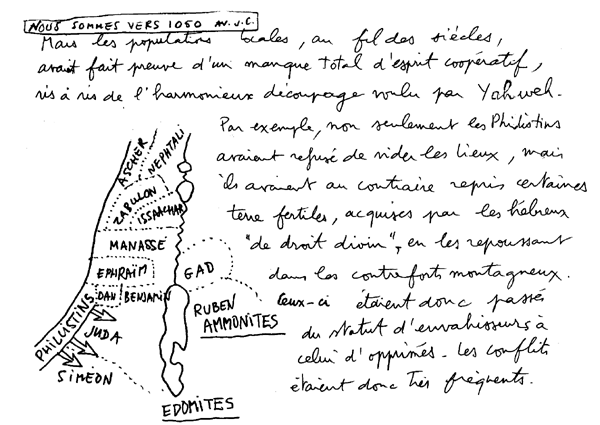 NOUS SOMMES VERS 1050 AV. J.C.
Mais les populations locales, au fil des siècles,
avait fait preuve d'un manque total d'esprit coopératif,
vis à vis de l'harmonieux découpage voulu par Yahweh.
Par exemple, non seulement les Philistins
avaient refusé de vider les lieux, mais
ils avaient au contraire repris certaines
terre fertiles, acquises par les hébreux
"de droit divin", en les repoussant
dans les contreforts montagneux.
Ceux-ci étaient donc passés
du statut d'envahisseurs à
celui d'opprimés. Les conflits
étaient donc très fréquents.
ASCHER
NEPHTALI
ZABULON
ISSAACHAR
MANASSÉ
EPHRAÏM
GAD
DAN
BENJAMIN
RUBEN
AMMONITES
PHILISTINS
JUDA
SIMÉON
EDOMITES